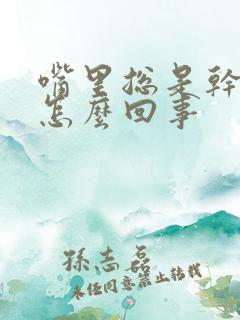 嘴里总是幹
怎麼回事
孫志磊
未经同意禁止转载